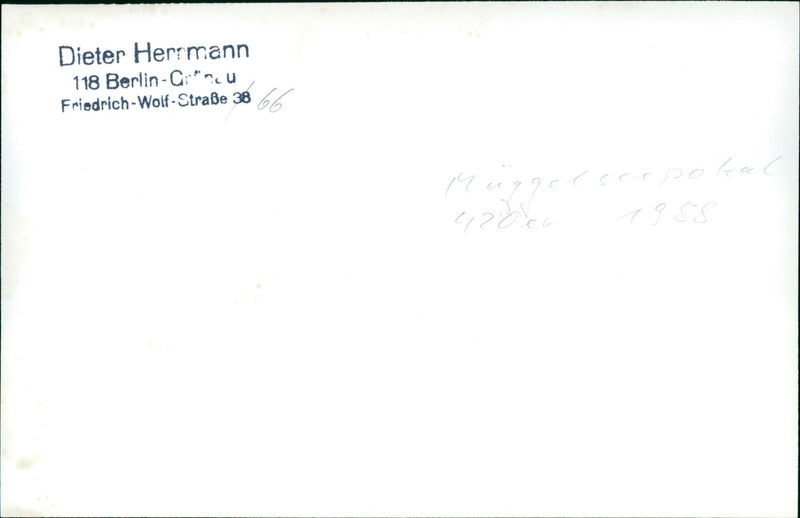 Dieter Herrmann
118 Berlin-Grünau
Friedrich-Wolf-Straße 38 66
Müggelseepokal
420er 1988